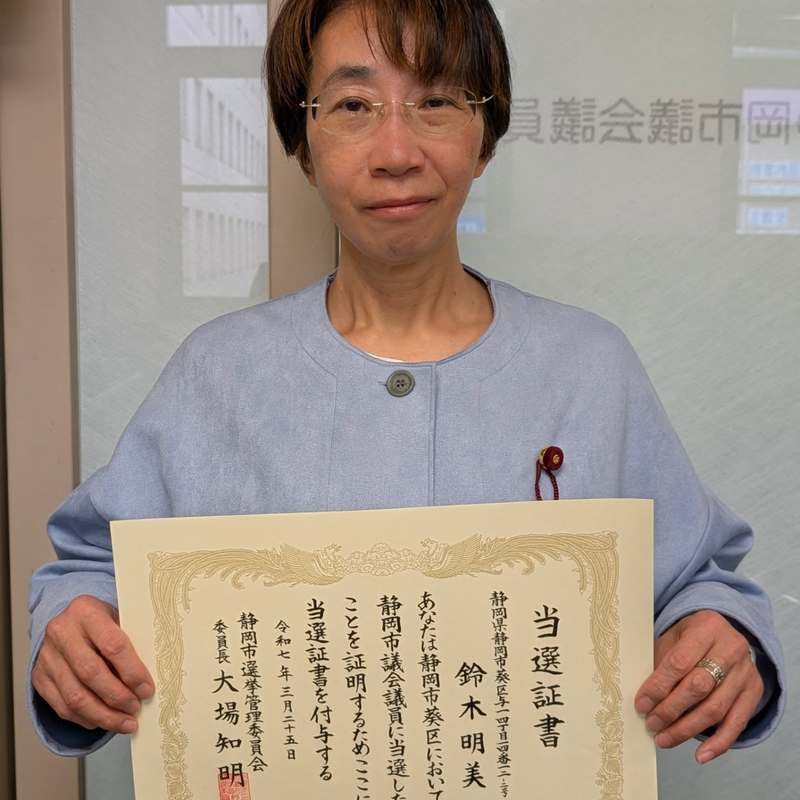 静岡市議会議員
当選証書
静岡県静岡市葵区与一四丁目四番一二-三号
鈴木明美
あなたは静岡市葵区において
静岡市議会議員に当選した
ことを証明するためここに
当選証書を付与する
令和七年三月二十五日
静岡市選挙管理委員会
委員長 大場知明